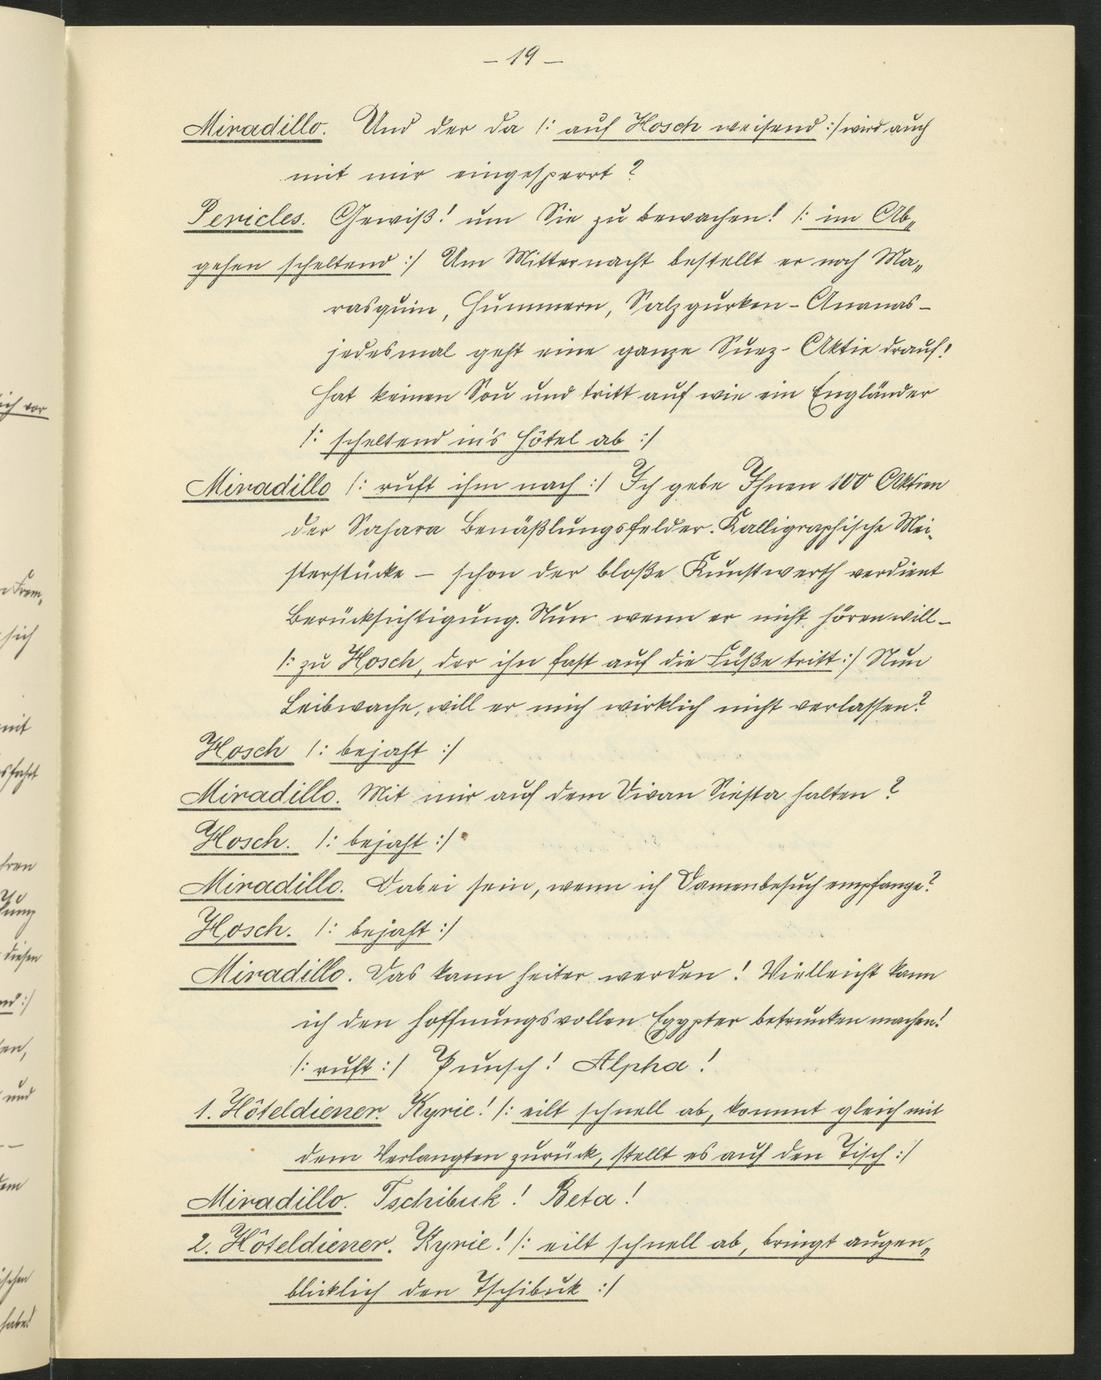 – 19 –
Miradillo. Und der da /: auf Hosch weisend :/ wird auch
mit mir eingesperrt?
Pericles. Gewiß! um Sie zu bewachen! /: im Ab„
gehen scheltend :/ Um Mitternacht bestellt er noch Ma„
rasquin, Hummern, Salzgurken – Ananas –
jedesmal geht eine ganze Suez-Aktie drauf!
Hat keinen Sou und tritt auf wie ein Engländer
/: scheltend in's Hôtel ab :/
Miradillo /: ruft ihm nach :/ Ich gebe Ihnen 100 Aktien
der Sahara Benäßlungsfelder. Kalligraphische Mei„
sterstücke – schon der bloße Kunstwerth verdient
Berücksichtigung. Nun wenn er nicht hören will –
/: zu Hosch, der ihn fast auf die Füße tritt :/ Nun
Leibwache, will er mich wirklich nicht verlassen?
Hosch /: bejaht :/
Miradillo. Mit mir auf dem Divan Siesta halten?
Hosch. /: bejaht :/
Miradillo. Dabei sein, wenn ich Damenbesuch empfange?
Hosch. /: bejaht :/
Miradillo. Das kann heiter werden! Vielleicht kann
ich den hoffnungsvollen Egypter betrunken machen!
/: ruft :/ Punsch! Alpha!
1. Hôteldiener. Kyrie! /: eilt schnell ab, kommt gleich mit
dem Verlangten zurück, stellt es auf den Tisch :/
Miradillo. Tschibuk! Beta!
2. Hôteldiener. Kyrie! /: eilt schnell ab, bringt augen„
blicklich den Tschibuk :/